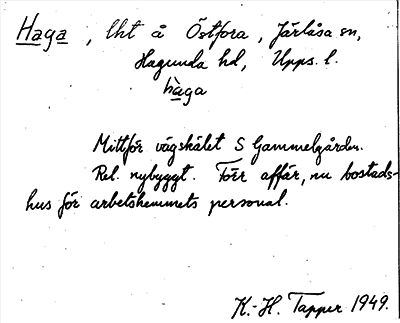 Haga, lht å Östfora, Järlåsa sn,
Hagunda hd, Upps. l.
hàga
Mittför vägskälet S Gammelgården.
Rel. nybyggt. Förr affär, nu bostads-
hus för arbetshemmets personal.
K.-H. Tapper 1949.